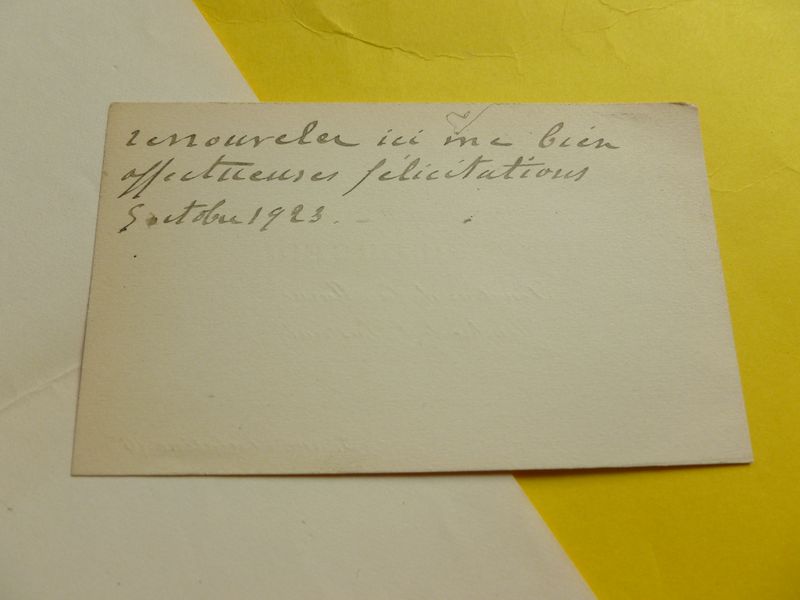 renouveler ici me bien
affectueuses félicitations
5 octobre 1923.